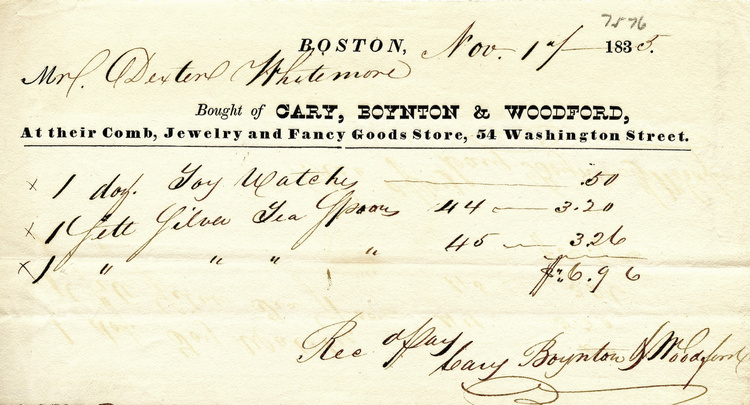 7576
BOSTON, Nov. 1st 1835.
Mr. Dexter Whitemore
Bought of CARY, BOYNTON & WOODFORD,
At their Comb, Jewelry and Fancy Goods Store, 54 Washington Street.
x 1 doz. Toy Watches .50
x 1 Sett Silver Tea Spoons 44 3.20
x 1 " " " " 45 3.26
$6.96
Rec d Pay Cary Boynton & Woodford